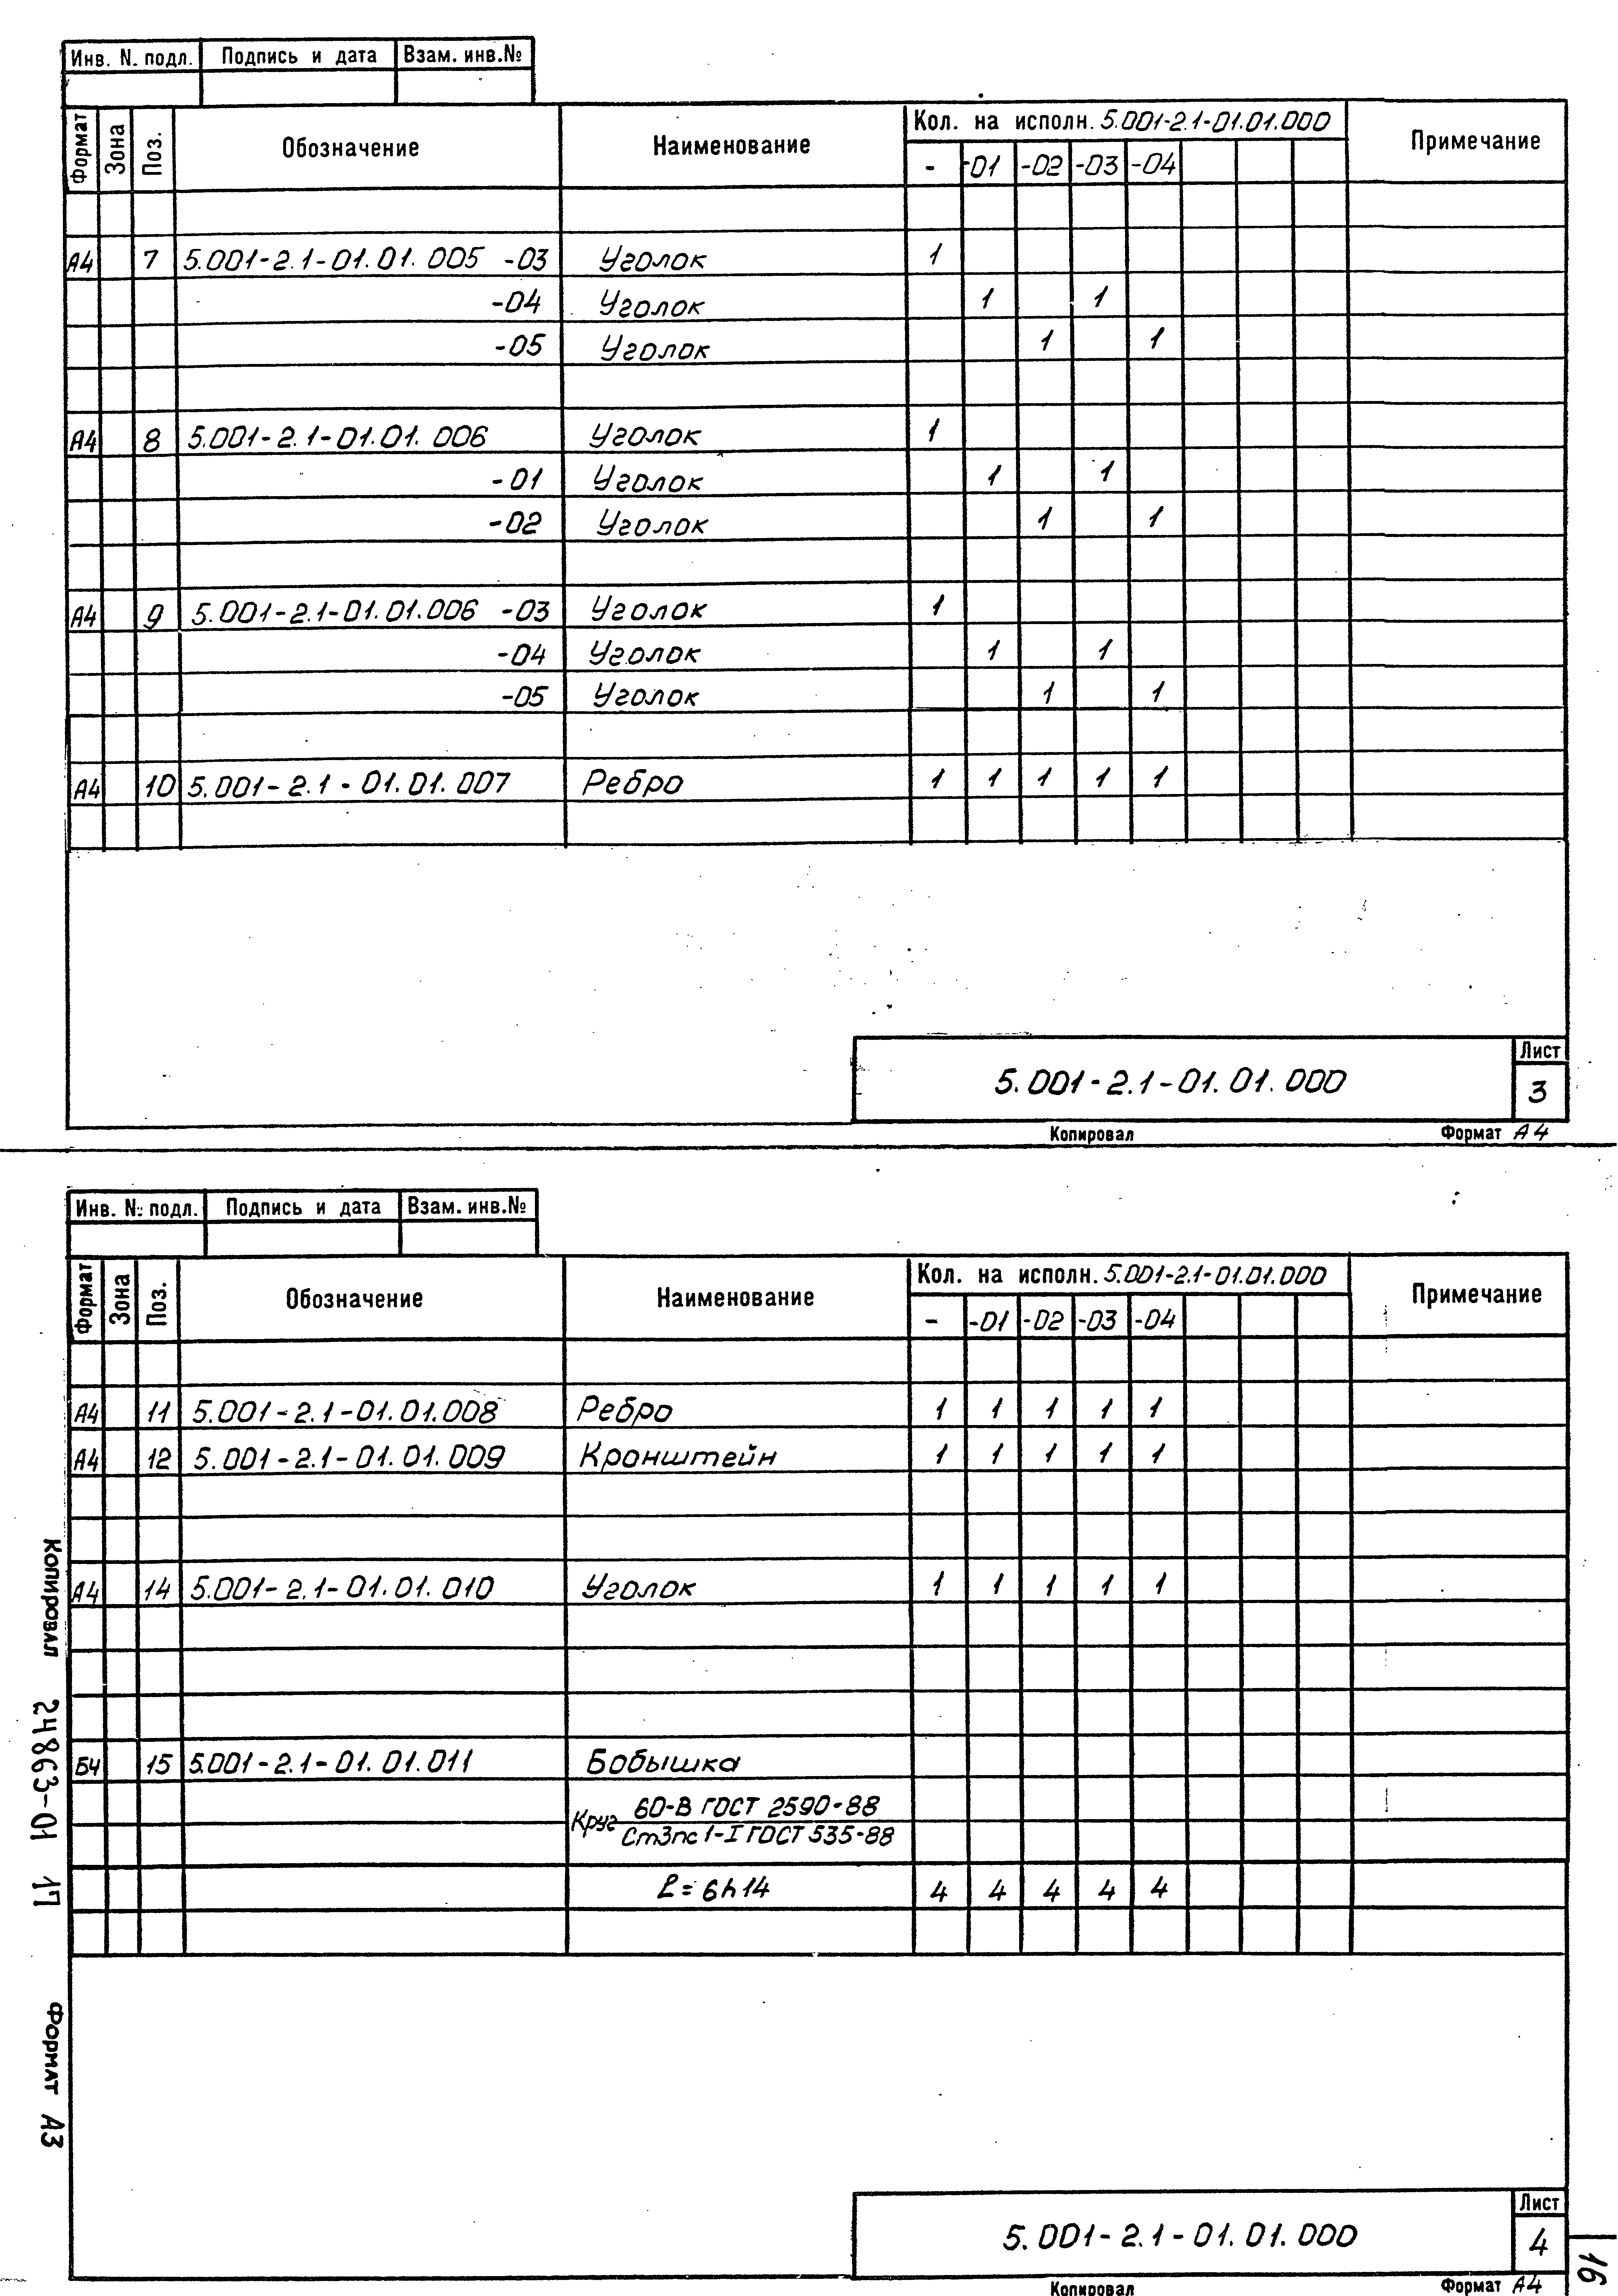 Инв. N. подл. Подпись и дата Взам. инв.№
Формат Зона Поз. Обозначение Наименование Кол. на исполн. 5.001-2.1-01.01.000 Примечание
- -01 -02 -03 -04
А4 7 5.001-2.1-01.01.005 -03 Уголок 1
-04 Уголок 1 1
-05 Уголок 1 1
А4 8 5.001-2.1-01.01.006 Уголок 1
-01 Уголок 1 1
-02 Уголок 1 1
А4 9 5.001-2.1-01.01.006 -03 Уголок 1
-04 Уголок 1 1
-05 Уголок 1 1
А4 10 5.001-2.1-01.01.007 Ребро 1 1 1 1 1
5.001-2.1-01.01.000 Лист
3
Копировал Формат А4
Инв. N: подл. Подпись и дата Взам. инв.№
Формат Зона Поз. Обозначение Наименование Кол. на исполн. 5.001-2.1-01.01.000 Примечание
- -01 -02 -03 -04
А4 11 5.001-2.1-01.01.008 Ребро 1 1 1 1 1
А4 12 5.001-2.1-01.01.009 Кронштейн 1 1 1 1 1
А4 14 5.001-2.1-01.01.010 Уголок 1 1 1 1 1
Б4 15 5.001-2.1-01.01.011 Бобышка
Круг 60-В ГОСТ 2590-88
Ст3пс1-I ГОСТ 535-88
ℓ=6h14 4 4 4 4 4
5.001-2.1-01.01.000 Лист
4
Копировал Формат А4
Копировал 24863-01 17 Формат А3
16